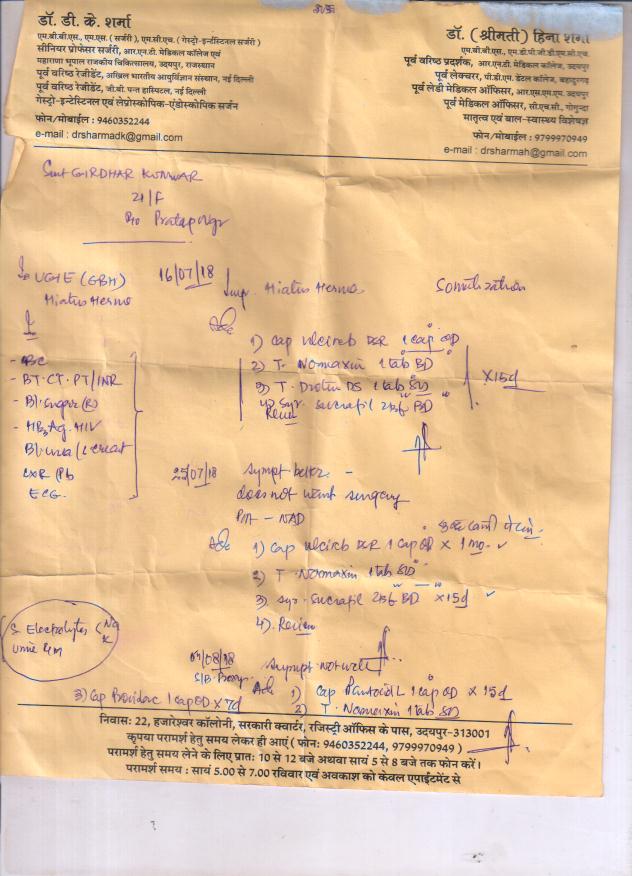 डॉ. डी. के. शर्मा
एम.बी.बी.एस., एम.एस. ( सर्जरी ), एम.सी.एच. ( गेस्ट्रो-इन्टेंस्टिनल सर्जरी )
सीनियर प्रोफेसर सर्जरी, आर.एन.टी. मेडिकल कॉलेज एवं
महाराणा भूपाल राजकीय चिकित्सालय, उदयपुर, राजस्थान
पूर्व वरिष्ठ रेजीडेंट, अखिल भारतीय आयुर्विज्ञान संस्थान, नई दिल्ली
पूर्व वरिष्ठ रेजीडेंट, जी.बी. पन्त हास्पिटल, नई दिल्ली
गेस्ट्रो-इन्टेस्टिनल एवं लेप्रोस्कोपिक-एंडोस्कोपिक सर्जन
फोन/मोबाईल : 9460352244
e-mail : drsharmadk@gmail.com
डॉ. ( श्रीमती ) हिना शर्मा
एम.बी.बी.एस., एम.डी.पी.जी.डी.एम.सी.एच.
पूर्व वरिष्ठ प्रदर्शक, आर.एन.टी. मेडिकल कॉलेज, उदयपुर
पूर्व लेक्चरर, पी.डी.एम. डेंटल कॉलेज, बहादुरगढ़
पूर्व लेडी मेडिकल ऑफिसर, आर.एस.एम.एम. उदयपुर
पूर्व मेडिकल ऑफिसर, सी.एच.सी., गोगुन्दा
मातृत्व एवं बाल-स्वास्थ्य विशेषज्ञ
फोन/मोबाईल : 9799970949
e-mail : drsharmah@gmail.com
Smt GIRDHAR KUNWAR
21/F
R/o Pratap Ngr
UGIE (GBH)
Hiatus Hernia
16/07/18
Imp. Hiatus Hernia
Adv
1) Cap DSR 1 cap OD
2) T. Nomaxin 1 tab BD
3) T. DS 1 tab
4) Syr. Sucrafil 2tsf BD
Review
X 15d
- CBC
- BT.CT.PT/INR
- Bl. sugar (R)
- HBsAg. HIV
Bl. urea/s creat
CXR (PA)
ECG.
/07/18 Sympt better -
does not want surgery
P/A - NAD
Adv 1) Cap DSR 1 cap OD X 1 mo.
2) T. Nomaxin 1 tab
3) syr. Sucrafil 2tsf BD X 15d
4). Review
S. Electrolytes < Na
K
/08/18 Sympt.
Adv 1) Cap Pantocid L 1 cap OD X 15d
2) T. Nomaxin 1 tab
3) Cap 1 cap OD X 7d
निवास: 22, हजारेश्वर कॉलोनी, सरकारी क्वार्टर, रजिस्ट्री ऑफिस के पास, उदयपुर-313001
कृपया परामर्श हेतु समय लेकर ही आएं ( फोन: 9460352244, 9799970949 )
परामर्श हेतु समय लेने के लिए प्रात: 10 से 12 बजे अथवा सायं 5 से 8 बजे तक फोन करें।
परामर्श समय : सायं 5.00 से 7.00 रविवार एवं अवकाश को केवल एपाईटमेंट से